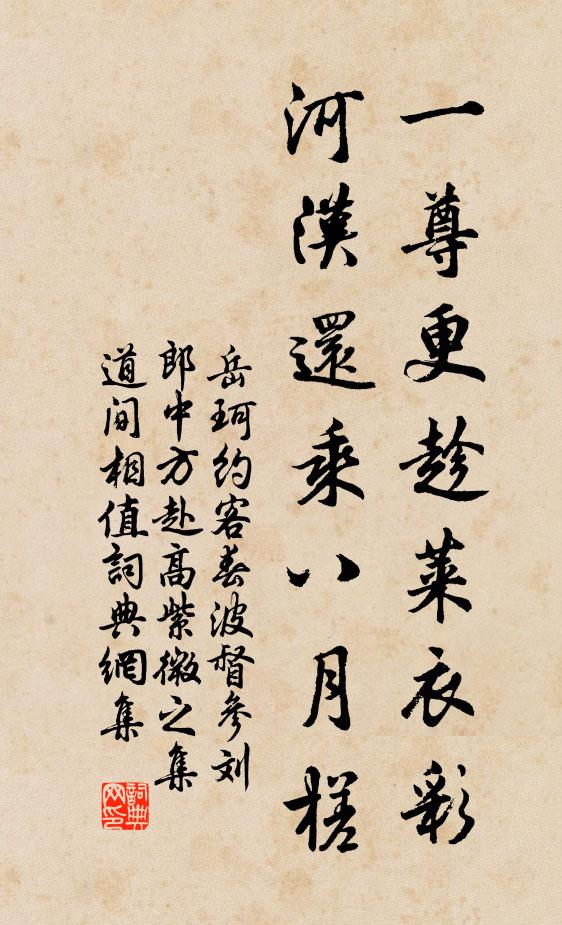 一尊更趁萊衣彩
河漢還乘八月槎
岳珂約客春波督參刘
郎中方赴高紫微之集
道间相值詞典網集
詞典网印